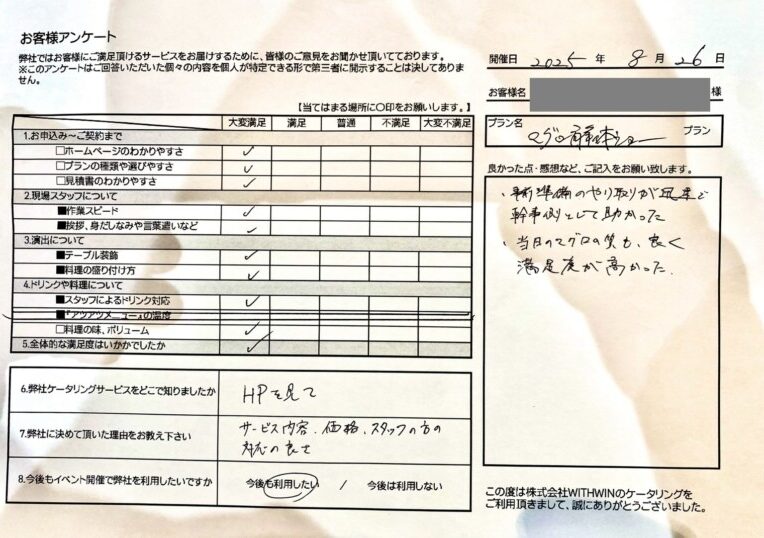 お客様アンケート
弊社ではお客様にご満足頂けるサービスをお届けするために、皆様のご意見をお聞かせ頂いてております。
※このアンケートはご回答いただいた個々の内容を個人が特定できる形で第三者に開示することは決してありません。
【当てはまる場所に〇印をお願いします。】
大変満足 満足 普通 不満足 大変不満足
1.お申込み～ご契約まで
□ホームページのわかりやすさ ✓
□プランの種類や選びやすさ ✓
□見積書のわかりやすさ ✓
2.現場スタッフについて
■作業スピード ✓
■挨拶、身だしなみや言葉遣いなど ✓
3.演出について
■テーブル装飾 ✓
■料理の盛り付け方 ✓
4.ドリンクや料理について
■スタッフによるドリンク対応 ✓
■『アツアツメニュー』の温度
□料理の味、ボリューム ✓
5.全体的な満足度はいかかでしたか ✓
6.弊社ケータリングサービスをどこで知りましたか HPを見て
7.弊社に決めて頂いた理由をお教え下さい サービス内容、価格、スタッフの方の
対応の良さ
8.今後もイベント開催で弊社を利用したいですか 今後も利用したい / 今後は利用しない
開催日 2025 年 8 月 26 日
お客様名 様
プラン名
マグロ解体ショー プラン
良かった点・感想など、ご記入をお願い致します。
・事前準備のやり取りが迅速で
幹事側として助かった
・当日のマグロの質も、良く
満足度が高かった.
この度は株式会社WITHWINのケータリングを
ご利用頂きまして、誠にありがとうございました。